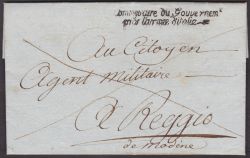 Commissaire du Gouvernemt
près l'armée d'Italie
Au Citoyen
Agent Militaire
à Reggio
de Modène